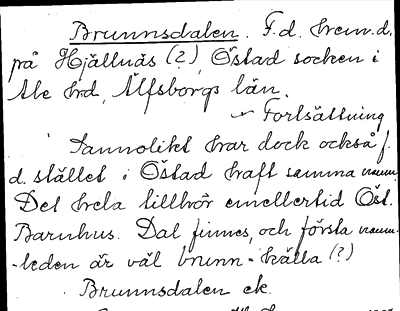 Brunnsdalen. F.d. hem.d.
på Hjällnäs (?), Östad socken i
Ale hrd, Älfsborgs län.
Fortsättning
Sannolikt har dock också f.
d. stället i Östad haft samma namn.
Det hela tillhör emellertid Öst.
Barnhus. Dal finnes, och första namn-
-leden är väl brunn = källa (?)
Brunnsdalen ek.